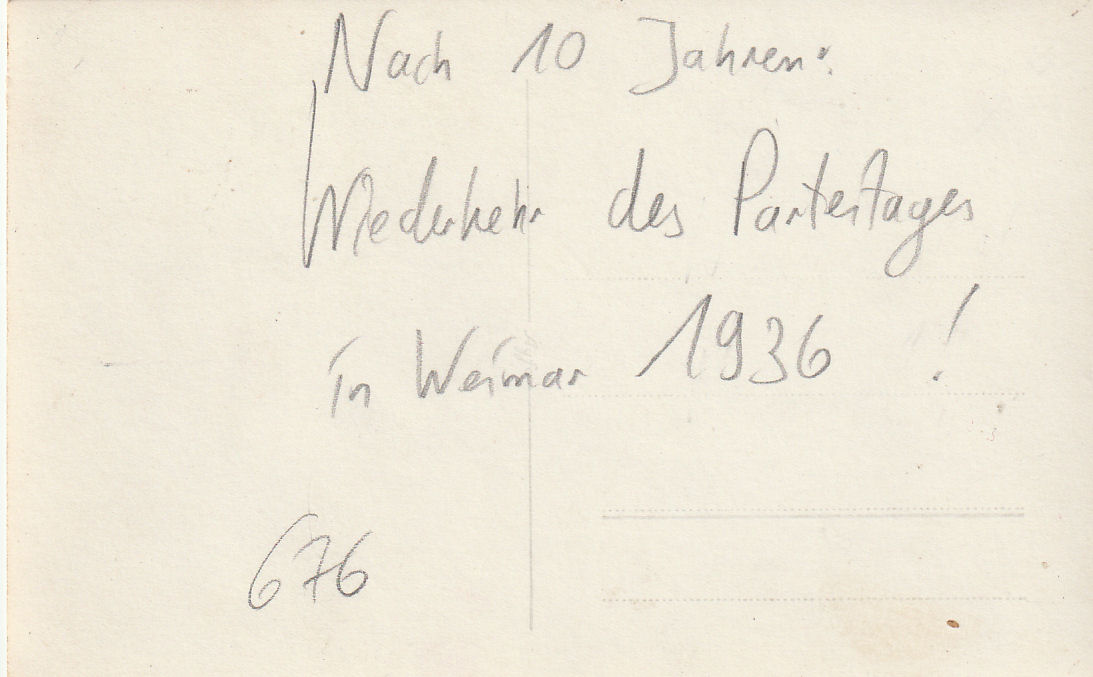 Nach 10 Jahren:
Wiederkehr des Parteitages
in Weimar 1936 !
676